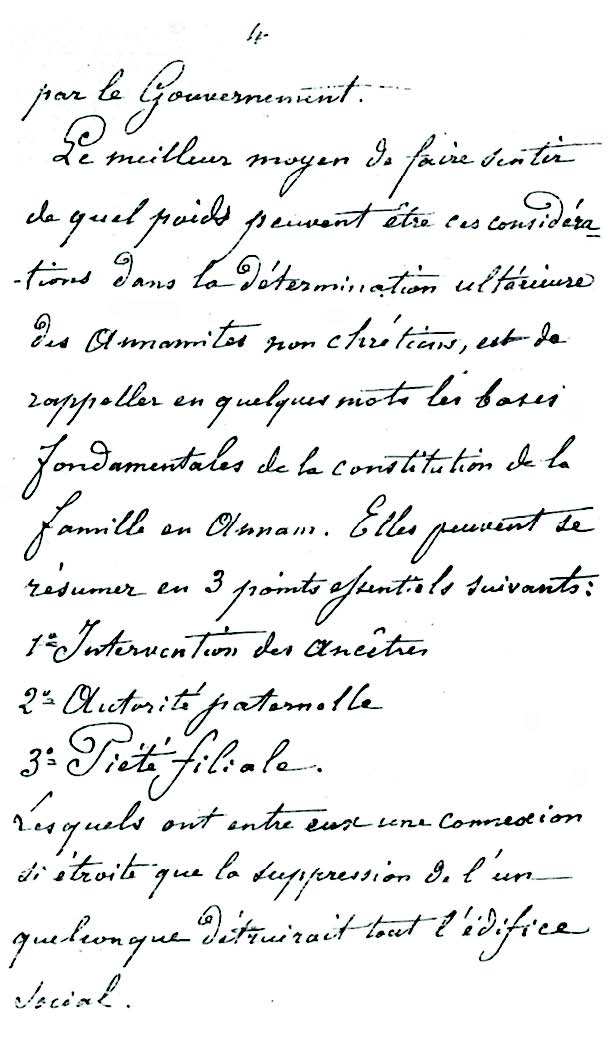 4
par le Gouvernement.
Le meilleur moyen de faire sentir
de quel poids peuvent être ces considéra-
-tions dans la détermination ultérieure
des Annamites non chrétiens, est de
rappeller en quelques mots les bases
fondamentales de la constitution de la
famille en Annam. Elles peuvent se
résumer en 3 points essentiels suivants:
1º Intervention des ancêtres
2º Autorité paternelle
3º Piété filiale.
Lesquels ont entre eux une connexion
si étroite que la suppression de l'un
quelconque détruirait tout l'édifice
social.